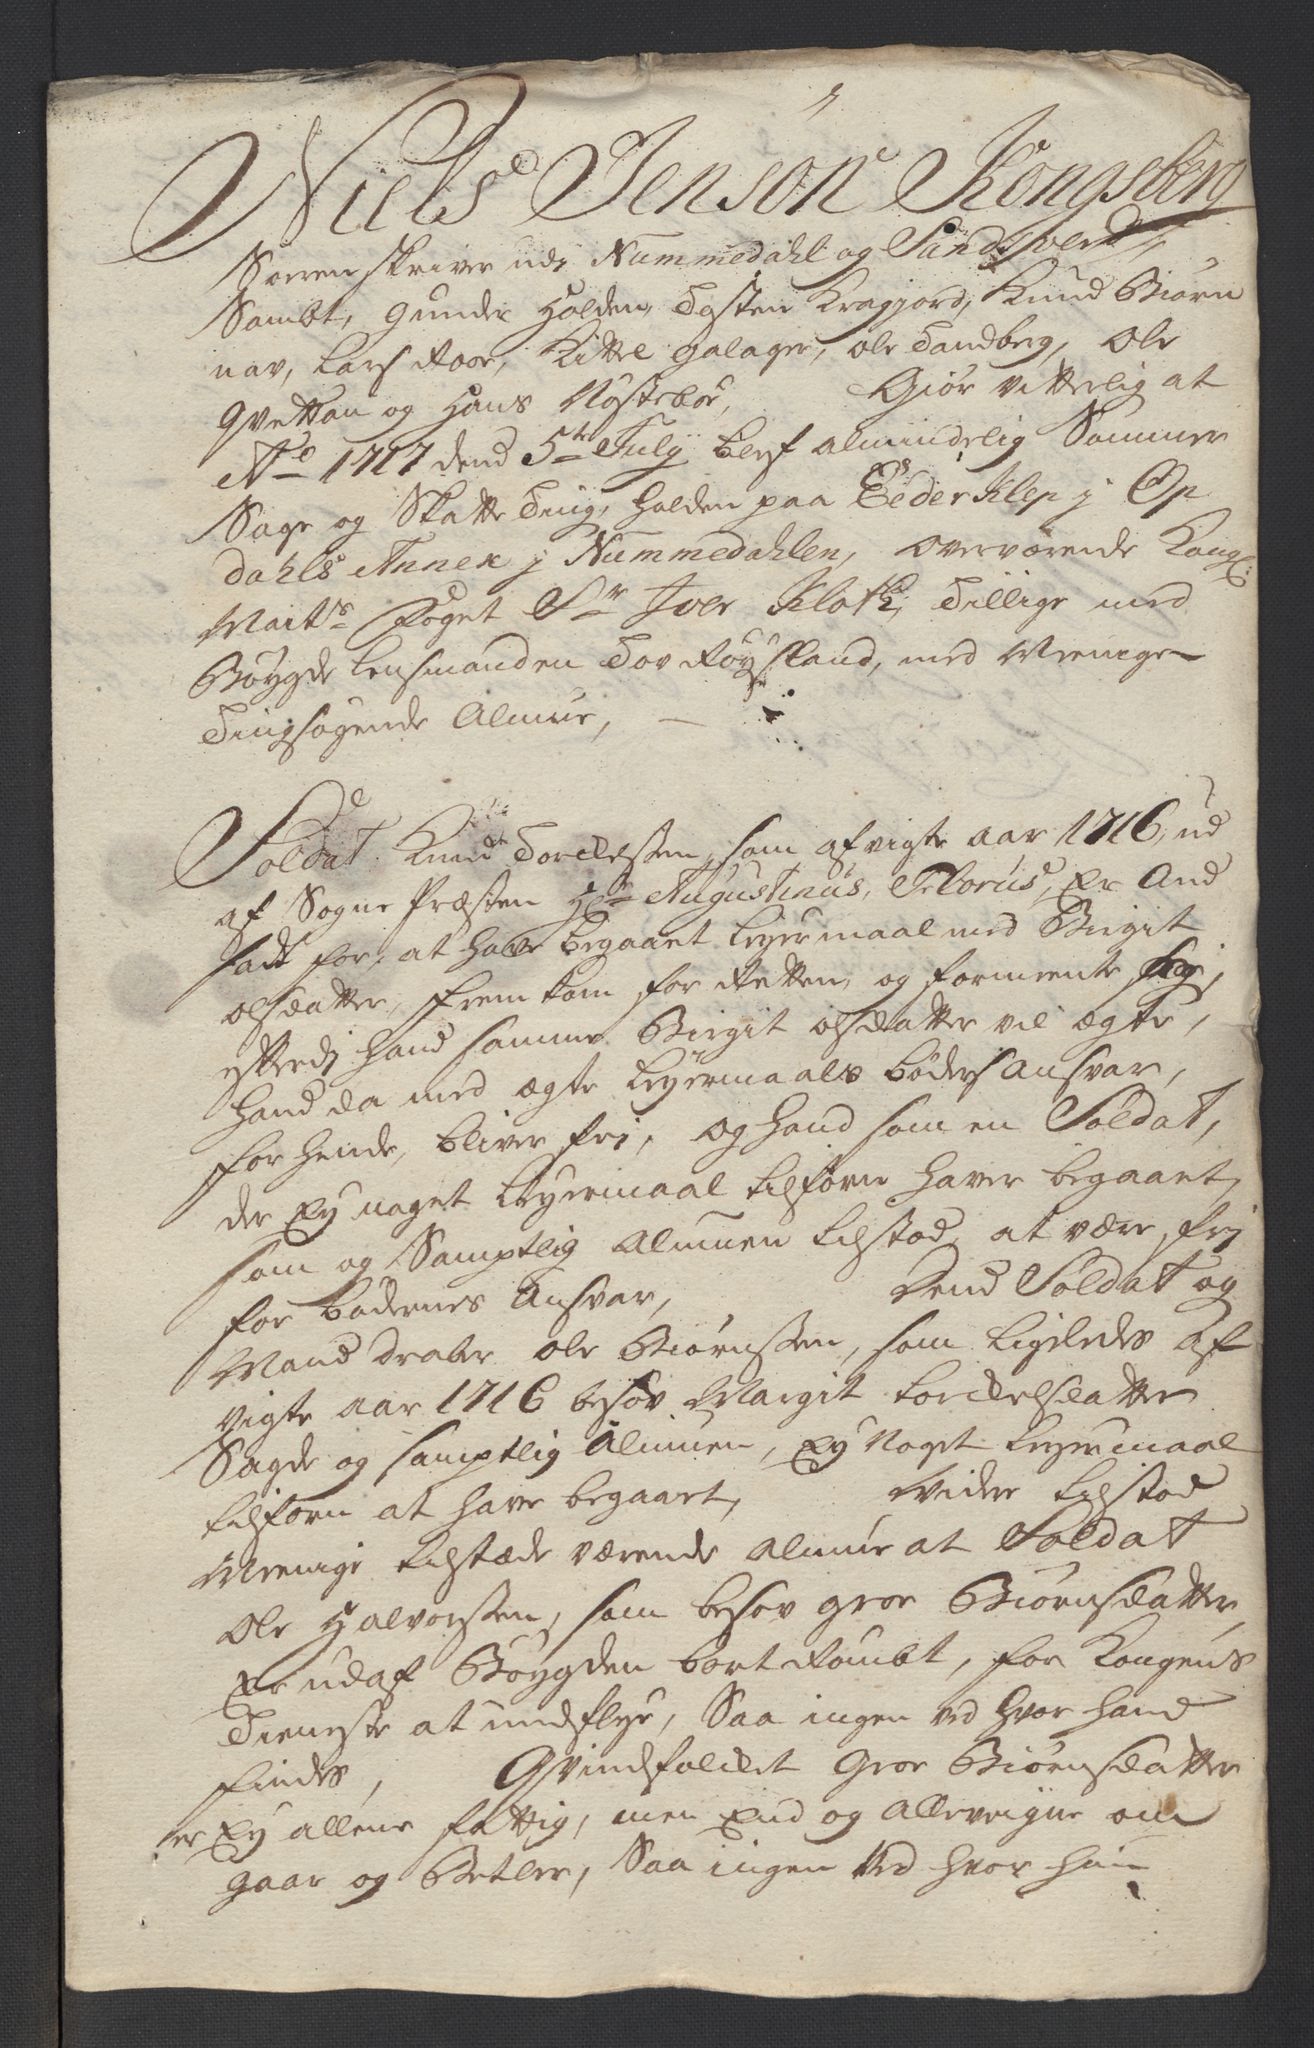 Niels Jensøn Kongsberg
Sorenskriver udj Nummedahl og Sandsverd,
Sambt, Gunder Holden, Tosten Kragjord, Knud Biørn
nav, Lars Roe, Kittel Galager, Ole Sandberg, Ole
Qvettan og Hans Nøstebøe, Giør vitterlig at
Ao 1717 dend 5te July blef almindelig Sommer
Sage og Skatte Ting, holden paa Eeder Klep j Op
dahls Annex j Nummedahlen, overværende Kongl:
Maits Foget Sr Iver Kloth, Tillige med
Bøygde Lensmanden Tov Røysland, med Meenige
Tingsøgende Almue,
Soldat Knud Tordelssen, som afvigte aar 1716, ud
af Sogne Præsten Hr Augustinus Telorus, er and
sadt for, at have begaaet leyermaal med Birgit
olsdatter, frem kom for Retten, og formeente sig,
efterdj hand samme Birgit olsdatter vil ægte,
hand da med ægte leyermaals bøders ansvar,
for hende, bliver frj, og hand som en Soldat,
der ey noget leyermaal tilforn haver begaaet,
som og Samptlig Almuen tilstod, at være frj
for bødernes ansvar, Dend Soldat og
Mand draber ole Biørnssen, som ligeledes af
vigte aar 1716 besov Margit tordelsdatter
Sagde og samptlig Almuen, ey noget leyermaal
tilforn at have begaaet, Widere tilstod
Meenige tilstæde værende almue at Soldat
Ole Halvorssen, som besov Groe Biørnsdatter,
er udaf Bøygden bort Rømbt, for Kongens
Tieneste at undflye, Saa ingen ved hvor hand
findes, Qvindfolcket Groe Biørnsdatter
er ey allene fattig, men end og alleveigne om
gaar og Betler, Saa ingen ved hvor hun